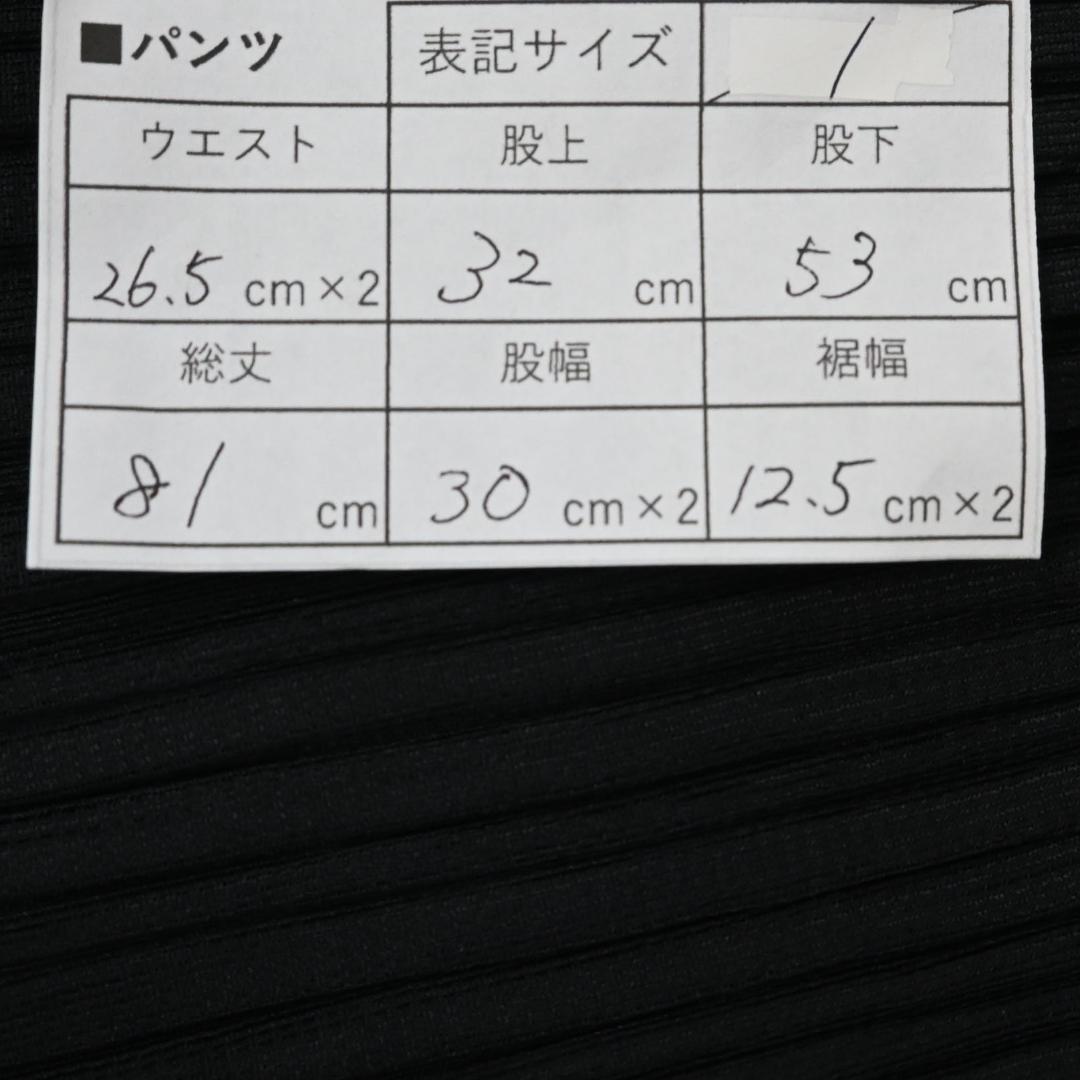 ■パンツ 表記サイズ 1
ウエスト 股上 股下
26.5 cm×2 32 cm 53 cm
総丈 股幅 裾幅
81 cm 30 cm×2 12.5 cm×2